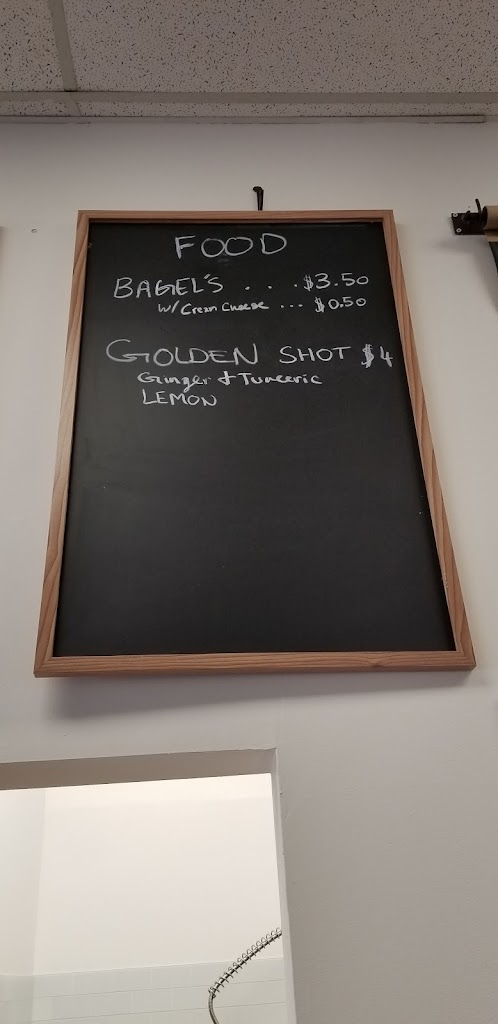 FOOD
BAGEL'S . . . $3.50
W/ Cream Cheese ... $0.50
GOLDEN SHOT $4
Ginger + Turmeric
LEMON